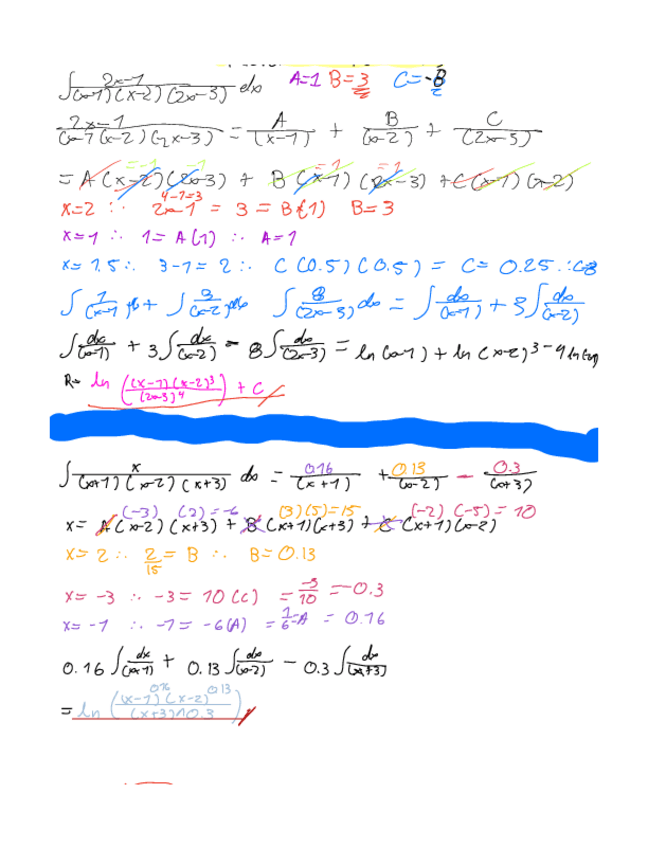 ∫ 2x-1/((x-1)(x-2)(2x-3)) dx A=1 B=3 C=-8
2x-1/((x-1)(x-2)(2x-3)) = A/(x-1) + B/(x-2) + C/(2x-3)
=-1 -1 =1 =1
= A(x-2)(2x-3) + B(x-1)(2x-3) + C(x-1)(x-2)
4-1=3
x=2 ∴ 2x-1 = 3 = B(1) B=3
x=1 ∴ 1=A(1) ∴ A=1
x=1.5∴ 3-1=2∴ C(0.5)(0.5) = C= 0.25
∫ 1/(x-1) dx + ∫ 3/(x-2) dx ∫ 8/(2x-3) dx = ∫ dx/(x-1) + 3∫ dx/(x-2)
∫ dx/(x-1) + 3∫ dx/(x-2) - 8∫ dx/(2x-3) = ln(x-1) + ln(x-2)^3 - 4ln
R= ln((x-1)(x-2)^3/(2x-3)^4) + C
∫ x/((x+1)(x-2)(x+3)) dx = 0.16/(x+1) + 0.13/(x-2) - 0.3/(x+3)
(-3) (2)=-6 (3)(5)=15 (-2)(-5)=10
x= A(x-2)(x+3) + B(x+1)(x+3) + C(x+1)(x-2)
x=2∴ 2/15 = B ∴ B=0.13
x=-3 ∴ -3=10(C) = -3/10 = -0.3
x=-1 ∴ -1=-6(A) = 1/6=A = 0.16
0.16∫ dx/(x+1) + 0.13∫ dx/(x-2) - 0.3∫ dx/(x+3)
= ln((x-1)^0.16 (x-2)^0.13/(x+3)^0.3)